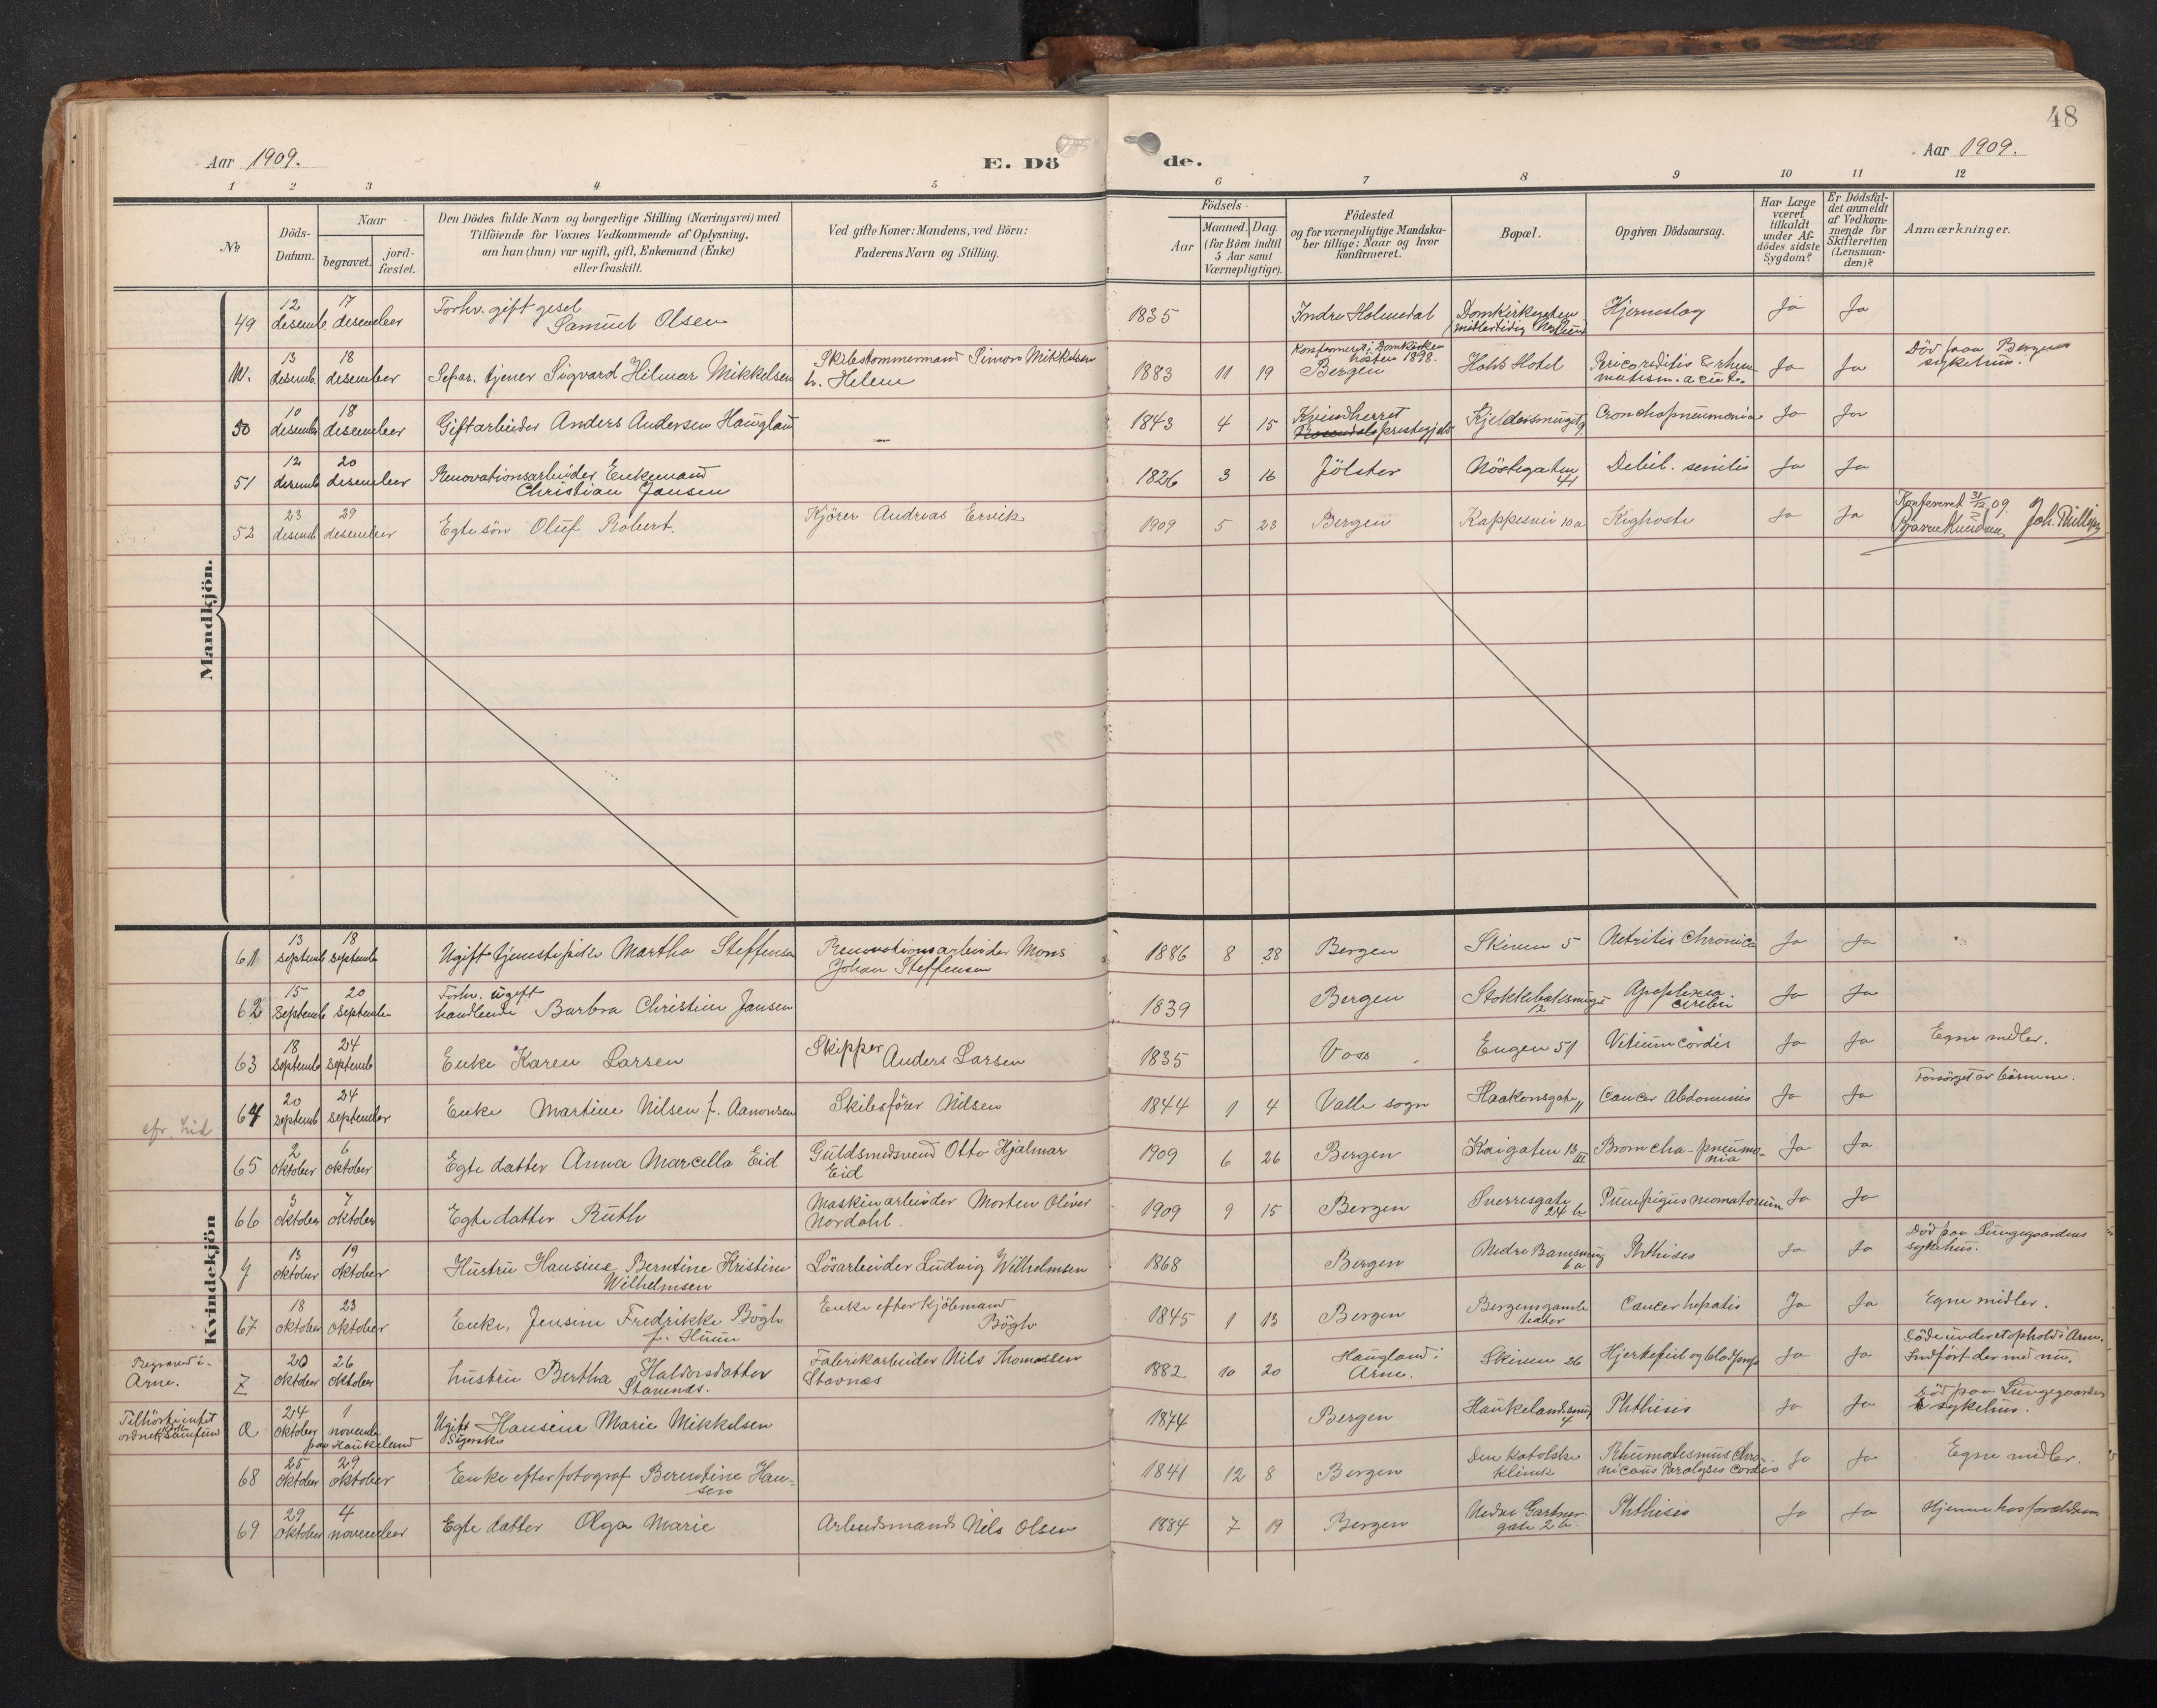 48
Aar 1909.
E. Dö de.
Aar 1909.
1 2 3 4 5 6 7 8 9 10 11 12
No
Döds-Datum.
Naar
begravet.
jord-fæstet.
Den Dödes fulde Navn og borgerlige Stilling (Næringsvei) med
Tilföiende for Voxnes Vedkommende af Oplysning,
om han (hun) var ugift, gift, Enkemand (Enke)
eller fraskilt.
Ved gifte Koner: Mandens, ved Börn:
Faderens Navn og Stilling.
Födsels-
Aar
Maaned. Dag.
(for Börn indtil
5 Aar samt
Værnepligtige).
Födested
og for værnepligtige Mandska-
ber tillige: Naar og hvor
konfirmeret.
Bopæl.
Opgiven Dödsaarsag.
Har Læge
været
tilkaldt
under Af-
dödes sidste
Sygdom?
Er Dödsfal-
det anmeldt
af Vedkom-
mende for
Skifteretten
(Lensman-
den)?
Anmærkninger.
Mandkjön.
49 12 desemb. 17 desember Forhv. gift gesel Samuel Olsen 1835 Indre Holmedal Domkirkegaten midlertidig Hjerneslag Ja Ja
W. 13 desemb. 18 desember Separ. tjener Sigvard Hilmar Mikkelsen Skibstømmermand Simon Mikkelsen h. Helene 1883 11 19 Konfirmert i Domkirken hösten 1898. Bergen Holdts Hotel Pericarditis & rheumatism. acut. Ja Ja Död paa Bergens sykehus.
50 10 desember 18 desember Gift arbeider Anders Andersen Haugland — 1843 4 15 Kvindherret Rosendals prestegjeld Kjeldersmuget 9 Bronchopneumonia Ja Ja
51 12 desemb. 20 desember Renovationsarbeider Enkemand Christian Jansen 1826 3 16 Jölster Nöstegaten 41 Debil. senilis Ja Ja
52 23 desemb. 29 desember Egte sön Oluf Robert. Kjörer Andreas Ervik 1909 5 23 Bergen Kappesvei 10a Kighoste Ja Ja Konfereret 31/12 09.
Kvindekjön
61 13 septemb 18 septemb Ugift tjenestepike Martha Steffensen Renovationsarbeider Mons Johan Steffensen 1886 8 28 Bergen Skiven 5 Nefritis Chronica Ja Ja
62 15 septemb 20 september Forhv. ugift handlende Barbra Christine Jansen 1839 Bergen 12 Apoplexia cerebri Ja Ja
63 18 septemb 24 septemb Enke Karen Larsen Skipper Anders Larsen 1835 Voss Engen 51 Vitium cordis Ja Ja Egne midler.
64 20 septemb 24 september Enke Martine Nilsen f. Aanonsen Skibsförer Nilsen 1844 1 4 Valle sogn Haakonsgate 11 Cancer Abdominis Ja Ja Forsörget av börnene.
cfr. Eid
65 2 oktober 6 oktober Egte datter Anna Marcella Eid Guldsmedsvend Otto Hjalmar Eid 1909 6 26 Bergen Kaigaten 13 III Broncha-pneumonia Ja Ja
66 3 oktober 7 oktober Egte datter Ruth Maskinarbeider Morten Oliver Nordahl. 1909 9 15 Bergen Sverresgate 24 b Pemfigus neonatorum Ja Ja
Y 13 oktober 19 oktober Hustru Hansine Berntine Kristine Wilhelmsen Lösarbeider Ludvig Wilhelmsen 1868 Bergen Nedre 6a Phthisis Ja Ja Död paa Lungegaardens sykehus.
67 18 oktober 23 oktober Enke, Jensine Fredrikke Bögh f. Huun Enke efter kjöbmand Bögh 1845 1 13 Bergen Bergens gamle teater Cancer hepatis Ja Ja Egne midler.
Begravet i Arne.
Z 20 oktober 26 oktober hustru Bertha Haldorsdatter Stavenes. Fabrikarbeider Nils Thomassen Stavnes 1882 10 20 Haugland i Arne. Skiven 26 Hjertefeil og blodprop Ja Ja Döde under et ophold i Arne. Indfört der med nu.
Tilhörte intet ordnet kristent samfund
Æ 24 oktober 1 november paa Haukeland Ugift Syerske Hansine Marie Mikkelsen 1874 Bergen Haukelandsmug 4 Phthisis Ja Ja Död paa Lungegaardens sykehus.
68 25 oktober 29 oktober Enke efter fotograf Berentine Hansen 1841 12 8 Bergen Den katolske klinik Rheumatismus chronicus Paralysis cordis Ja Ja Egne midler.
69 29 oktober 4 november Egte datter Olga Marie Arbeidsmand Nils Olsen 1884 7 19 Bergen Nedre Gartnergate 2 b. Phthisis Ja Ja Hjemme hos forældrene